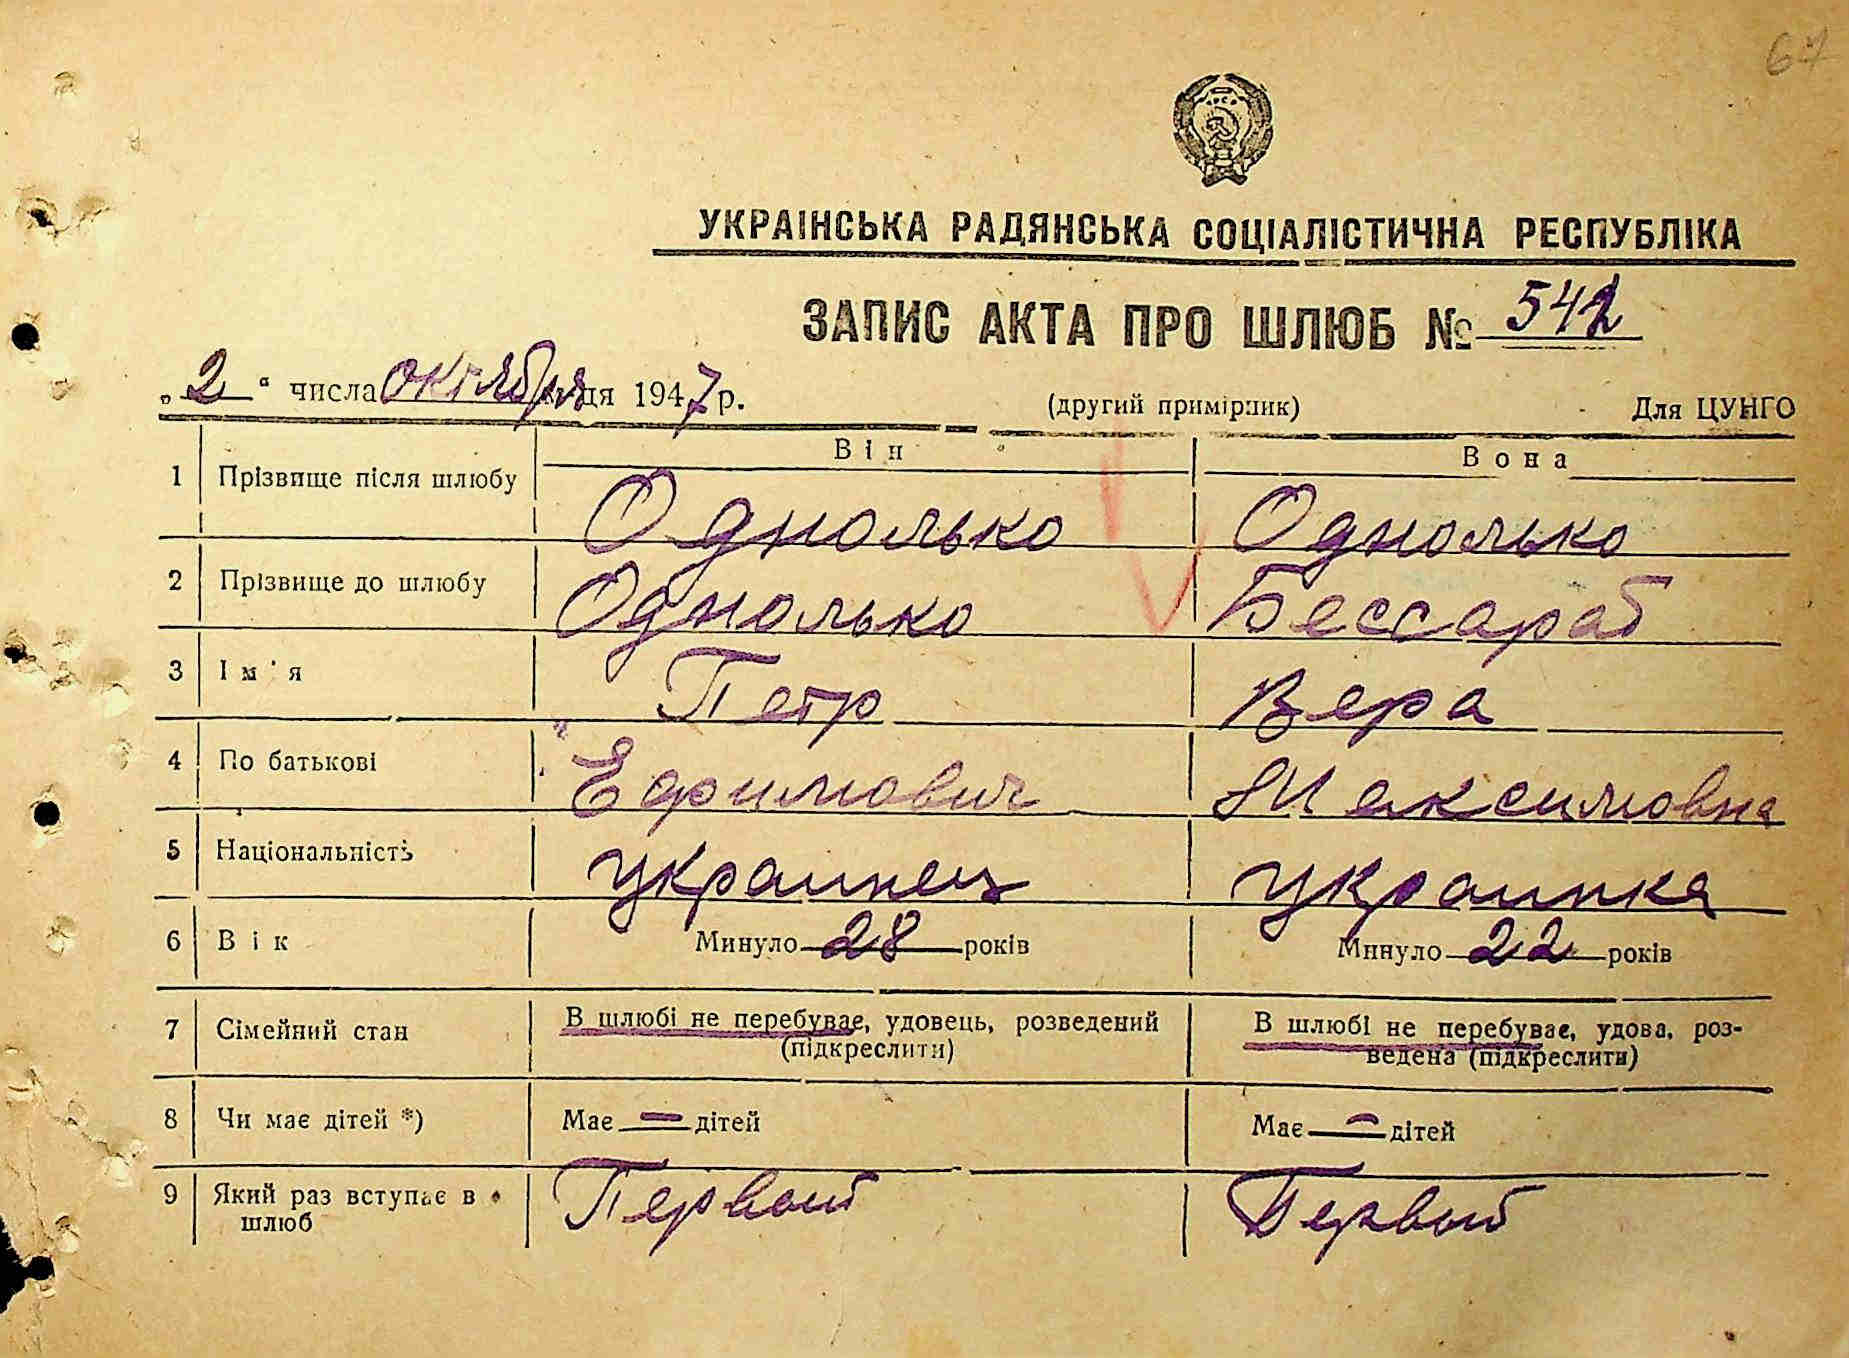 67
УКРАЇНСЬКА РАДЯНСЬКА СОЦІАЛІСТИЧНА РЕСПУБЛІКА
ЗАПИС АКТА ПРО ШЛЮБ № 542
„2“ числа октября місяця 1947 р. (другий примірник) Для ЦУНГО
Він Вона
1 Прізвище після шлюбу Однолько Однолько
2 Прізвище до шлюбу Однолько Бессараб
3 Ім'я Петр Вера
4 По батькові Ефимович Максимовна
5 Національність украинец украинка
6 Вік Минуло 28 років Минуло 22 років
7 Сімейний стан В шлюбі не перебуває, удовець, розведений В шлюбі не перебуває, удова, роз-
(підкреслити) ведена (підкреслити)
8 Чи має дітей *) Має — дітей Має — дітей
9 Який раз вступає в Первый Первый
шлюб